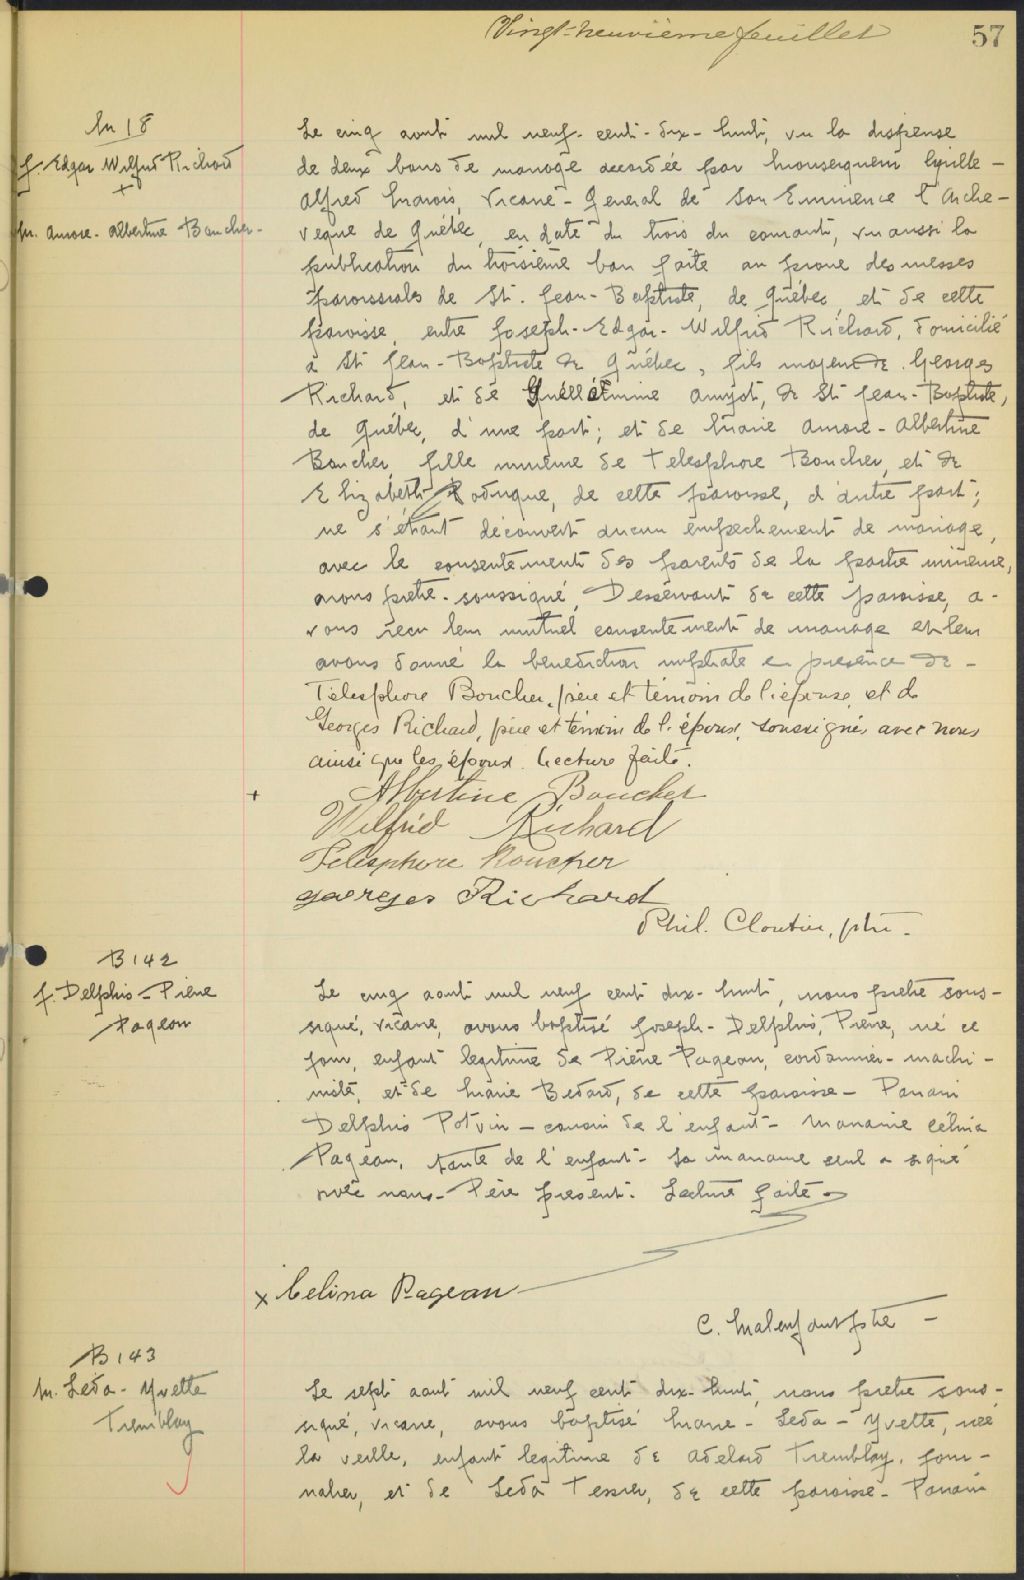 Vingt-neuvième feuillet
57
M 18
J. Edgar Wilfrid Richard
+
M. Aurore-Albertine Boucher-
Le cinq août mil neuf-cent-dix-huit, vu la dispense
de deux bans de mariage accordée par Monseigneur Cyrille-
Alfred Marois, Vicaire-Général de Son Eminence l'Arche-
vêque de Québec, en date du trois du courant, vu aussi la
publication du troisième ban faite au prône des messes
paroissiales de St. Jean-Baptiste, de Québec, et de cette
paroisse, entre Joseph-Edgar-Wilfrid Richard, domicilié
à St Jean-Baptiste de Québec, fils majeur de Georges
Richard, et de Amyot, de St Jean-Baptiste,
de Québec, d'une part; et de Marie Aurore-Albertine
Boucher, fille mineure de Télesphore Boucher, et de
Elizabeth Rodrigue, de cette paroisse, d'autre part;
ne s'étant découvert aucun empêchement de mariage,
avec le consentement des parents de la partie mineure,
nous prêtre-soussigné, Desservant de cette paroisse, a-
vons reçu leur mutuel consentement de mariage et leur
avons donné la bénédiction nuptiale en présence de-
Télesphore Boucher, père et témoin de l'épouse, et de
Georges Richard, père et témoin de l'époux, soussignés avec nous
ainsi que les époux. Lecture faite.
+ Albertine Boucher
Wilfrid Richard
Télesphore Boucher
Georges Richard
Phil. Cloutier, ptre.
B 142
J. Delphis-Pierre
Pageau
Le cinq août mil neuf cent dix-huit, nous prêtre sous-
signé, vicaire, avons baptisé Joseph-Delphis, Pierre, né ce
jour, enfant légitime de Pierre Pageau, cordonnier-machi-
niste, et de Marie Bédard, de cette paroisse- Parrain
Delphis Potvin-cousin de l'enfant- Marraine Célina
Pageau, tante de l'enfant- La marraine seul a signé
avec nous- Père présent. Lecture faite-
x Celina Pageau
C. Malenfant ptre-
B 143
M. Léda-Yvette
Tremblay
Le sept août mil neuf cent dix-huit, nous prêtre sous-
signé, vicaire, avons baptisé Marie-Léda-Yvette, née
la veille, enfant légitime de Adélard Tremblay, jour-
nalier, et de Léda Tessier, de cette paroisse- Parrain